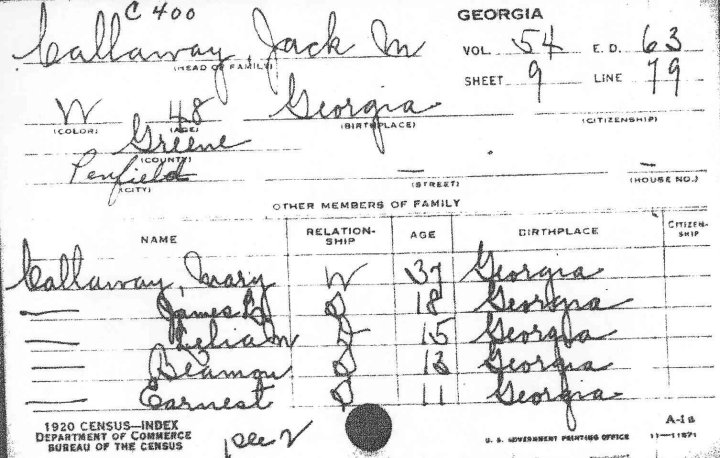 C 400
GEORGIA
Callaway, Jack M
(HEAD OF FAMILY)
VOL. 54 E. D. 63
SHEET 9 LINE 79
W 48 Georgia
(COLOR) (AGE) (BIRTHPLACE) (CITIZENSHIP)
Greene
(COUNTY)
Penfield — —
(CITY) (STREET) (HOUSE NO.)
OTHER MEMBERS OF FAMILY
NAME RELATION-SHIP AGE BIRTHPLACE CITIZEN-SHIP
Callaway, Mary W 37 Georgia
— James 18 Georgia
— Lelia M 15 Georgia
— Beamon 13 Georgia
— Earnest 11 Georgia
1920 CENSUS—INDEX
DEPARTMENT OF COMMERCE
BUREAU OF THE CENSUS
U. S. GOVERNMENT PRINTING OFFICE
A-1a
11—11871